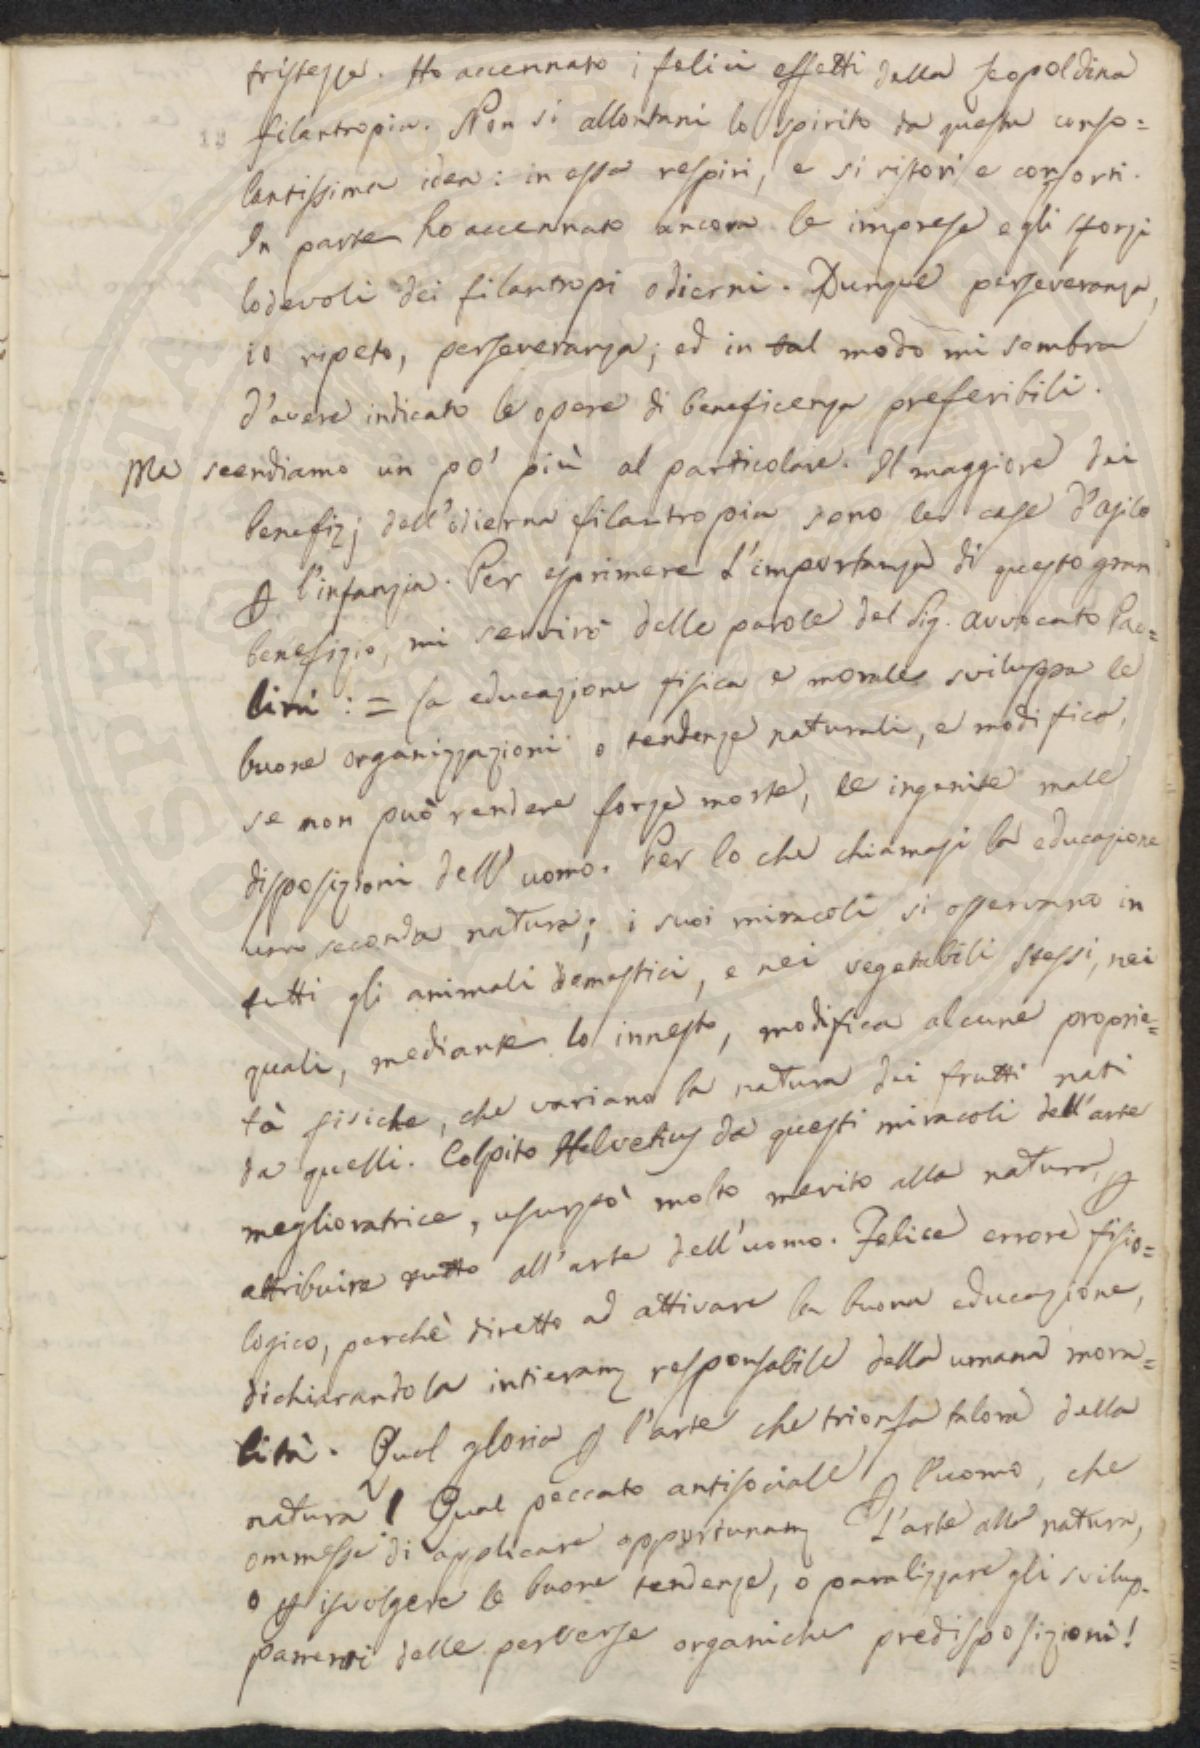 tristezze. Ho accennato i felici effetti della Leopoldina
filantropia. Non si allontani lo spirito da questa conso=
lantissima idea: in essa respiri, e si ristori e conforti.
In parte ho accennato ancora le imprese e gli sforzi
lodevoli dei filantropi odierni. Dunque perseveranza,
io ripeto, perseveranza; ed in tal modo mi sembra
d'avere indicato le opere di beneficenza preferibili.
Ma scendiamo un po' più al particolare. Il maggiore dei
benefizj dell'odierna filantropia sono le case d'asilo
p l'infanzia. Per esprimere l'importanza di questo gran
benefizio, mi servirò delle parole del Sig. Avvocato Pao=
lini: = La educazione fisica e morale sviluppa le
buone organizzazioni o tendenze naturali, e modifica,
se non può rendere forze morte, le ingenite male
disposizioni dell'uomo. Per lo che chiamasi la educazione
una seconda natura; i suoi miracoli si osservano in
tutti gli animali domestici, e nei vegetabili stessi, nei
quali, mediante lo innesto, modifica alcune proprie=
tà fisiche, che variano la natura dei frutti nati
da quelli. Colpito Helvetius da questi miracoli dell'arte
miglioratrice, usurpò molto merito alla natura, p
attribuire tutto all'arte dell'uomo. Felice errore fisio=
logico, perchè diretto ad attivare la buona educazione,
dichiarandola intieram responsabile della umana mora=
lità. Qual gloria p l'arte che trionfa talora della
natura! Qual peccato antisociale p l'uomo, che
ommesse di applicare opportunam l'arte alla natura,
o p isvolgere le buone tendenze, o paralizzare gli svilup-
pamenti delle perverse organiche predisposizioni!